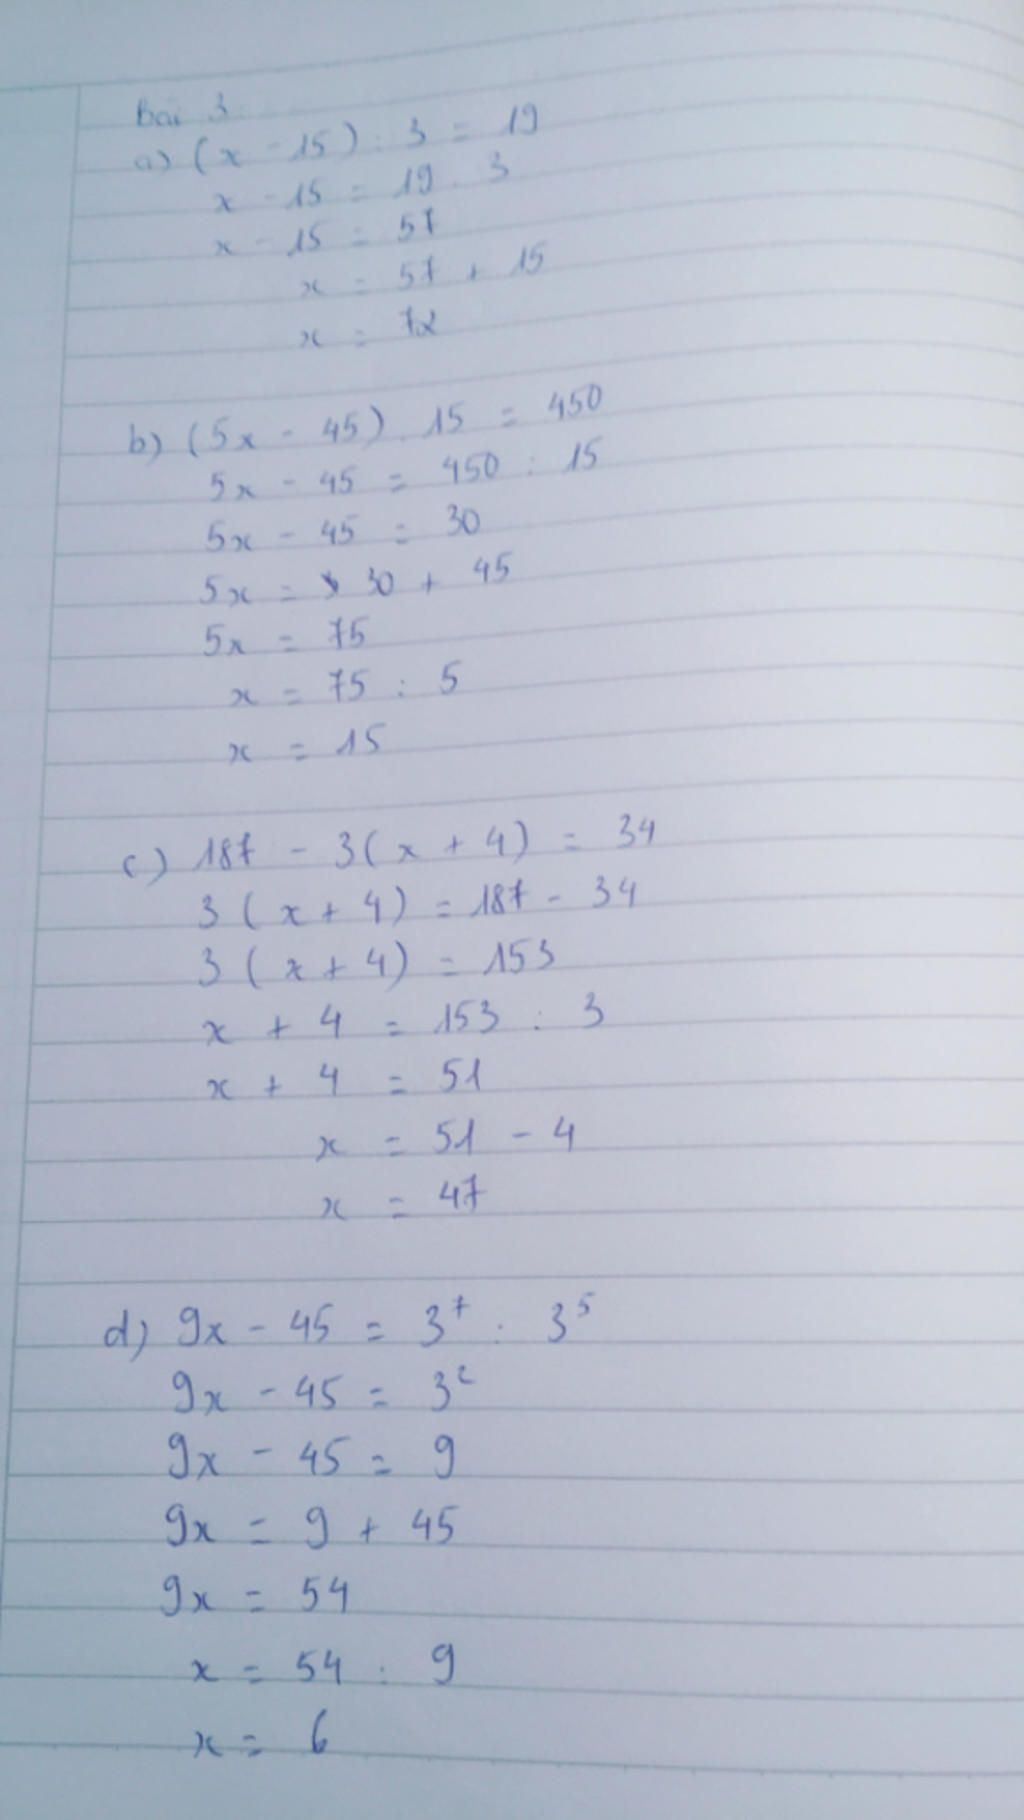 Bài 3
a) (x - 15) : 3 = 19
x - 15 = 19 . 3
x - 15 = 57
x = 57 + 15
x = 72
b) (5x - 45) . 15 = 450
5x - 45 = 450 : 15
5x - 45 = 30
5x = 30 + 45
5x = 75
x = 75 : 5
x = 15
c) 187 - 3(x + 4) = 34
3(x + 4) = 187 - 34
3(x + 4) = 153
x + 4 = 153 : 3
x + 4 = 51
x = 51 - 4
x = 47
d) 9x - 45 = 3⁷ : 3⁵
9x - 45 = 3²
9x - 45 = 9
9x = 9 + 45
9x = 54
x = 54 : 9
x = 6